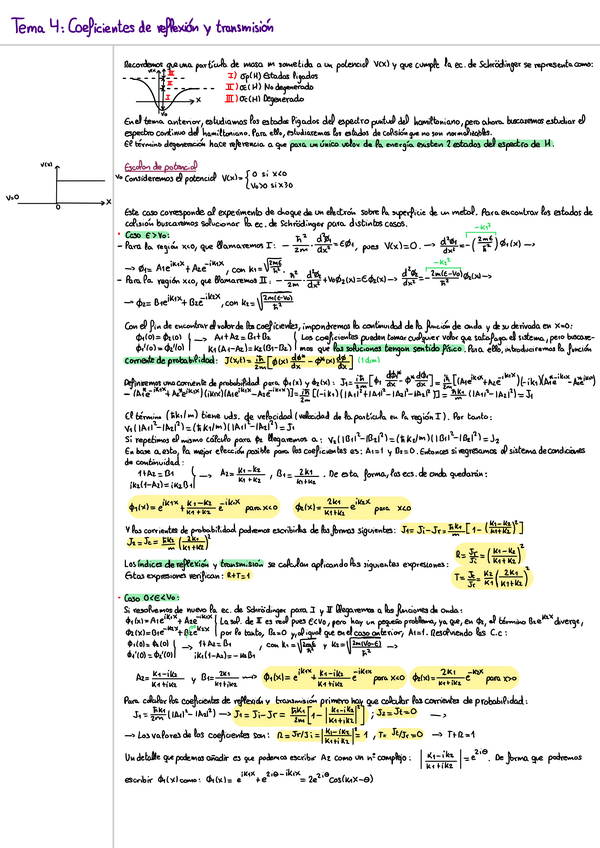 Tema 4: Coeficientes de reflexión y transmisión
Recordemos que una partícula de masa m sometida a un potencial V(x) y que cumple la ec. de Schrödinger se representa como:
I) σp(H) Estados ligados
II) σc(H) No degenerado
III) σc(H) Degenerado
En el tema anterior, estudiamos los estados ligados del espectro puntual del hamiltoniano, pero ahora buscaremos estudiar el
espectro continuo del hamiltoniano. Para ello, estudiaremos los estados de colisión que no son normalizables.
El término degeneración hace referencia a que para un único valor de la energía existen 2 estados del espectro de H.
Escalón de potencial
Consideremos el potencial V(x)= { 0 si x<0
V0>0 si x≥0
V(x)
V0
V=0
0
x
Este caso corresponde al experimento de choque de un electrón sobre la superficie de un metal. Para encontrar los estados de
colisión buscaremos solucionar la ec. de Schrödinger para distintos casos.
• Caso E>V0:
- Para la región x<0, que llamaremos I: -ħ²/2m d²ϕ1/dx² = Eϕ1, pues V(x)=0. → d²ϕ1/dx² = -(2mE/ħ²) ϕ1(x) →
→ ϕ1 = A1e^ik1x + A2e^-ik1x, con k1=√(2mE/ħ²)
- Para la región x<0, que llamaremos II: -ħ²/2m d²ϕ2/dx² + V0ϕ2(x)=Eϕ2(x) → d²ϕ2/dx² = -2m(E-V0)/ħ² ϕ2(x) →
→ ϕ2 = B1e^ik2x + B2e^-ik2x, con k2=√(2m(E-V0)/ħ²)
Con el fin de encontrar el valor de los coeficientes, impondremos la continuidad de la función de onda y de su derivada en x=0:
ϕ1(0)=ϕ2(0) → A1+A2=B1+B2 Los coeficientes pueden tomar cualquier valor que satisfaga el sistema, pero buscare-
ϕ1'(0)=ϕ2'(0) K1(A1-A2)=K2(B1-B2) mos que las soluciones tengan sentido físico. Para ello, introduciremos la función
corriente de probabilidad: J(x,t)= iħ/2m [ϕ(x) dϕ*/dx - ϕ*(x) dϕ/dx] (1dim)
Definiremos una corriente de probabilidad para ϕ1(x) y ϕ2(x): J1= iħ/2m [ϕ1 dϕ1*/dx - ϕ1* dϕ1/dx] =
El término (ħk1/m) tiene uds. de velocidad (velocidad de la partícula en la región I). Por tanto:
V1(|A1|²-|A2|²)=(ħk1/m)(|A1|²-|A2|²)=J1
Si repetimos el mismo cálculo para ϕ2 llegaremos a: V2(|B1|²-|B2|²)=(ħk2/m)(|B1|²-|B2|²)=J2
En base a esto, la mejor elección posible para los coeficientes es: A1=1 y B2=0. Entonces si regresamos al sistema de condiciones
de continuidad:
1+A2=B1 → A2= (k1-k2)/(k1+k2), B1= 2k1/(k1+k2). De esta forma, las ecs. de onda quedarán:
ik1(1-A2)=ik2B1
ϕ1(x)=e^ik1x + (k1-k2)/(k1+k2) e^-ik1x para x<0 ϕ2(x)= 2k1/(k1+k2) e^ik2x para x<0
Y las corrientes de probabilidad podremos escribirlas de las formas siguientes: J1=Ji-Jr= ħk1/m [1-((k1-k2)/(k1+k2))²]
J2=Jt= ħk2/m (2k1/(k1+k2))²
R= Jr/Ji = ((k1-k2)/(k1+k2))²
Los índices de reflexión y transmisión se calculan aplicando las siguientes expresiones:
T= Jt/Ji = k2/k1 (2k1/(k1+k2))²
Estas expresiones verifican: R+T=1
• Caso 0<E<V0:
Si resolvemos de nuevo la ec. de Schrödinger para I y II llegaremos a las funciones de onda:
ϕ1(x)=A1e^ik1x + A2e^-ik1x La sol. de II es real pues E<V0, pero hay un pequeño problema, ya que, en ϕ2, el término B2e^k2x diverge,
ϕ2(x)=B1e^-k2x + B2e^k2x por lo tanto, B2=0 y, al igual que en el caso anterior, A1=1. Resolviendo las C.c:
ϕ1(0)=ϕ2(0) → 1+A2=B1, con k1=√(2mE/ħ²) y k2=√(2m(V0-E)/ħ²) →
ϕ1'(0)=ϕ2'(0) ik1(1-A2)=-k2B1
A2= (k1-ik2)/(k1+ik2) y B1= 2k1/(k1+ik2) → ϕ1(x)= e^ik1x + (k1-ik2)/(k1+ik2) e^-ik1x para x<0 ϕ2(x)= 2k1/(k1+ik2) e^-k2x para x>0
Para calcular los coeficientes de reflexión y transmisión primero hay que calcular las corrientes de probabilidad:
J1= ħk1/2m (|A1|²-|A2|²) → J1=Ji-Jr= ħk1/2m [1-|(k1-ik2)/(k1+ik2)|²]; J2=Jt=0 →
→ Los valores de los coeficientes son: R=Jr/Ji= |(k1-ik2)/(k1+ik2)|² = 1, T= Jt/Jr=0 → T+R=1
Un detalle que podemos añadir es que podemos escribir A2 como un nº complejo: |(k1-ik2)/(k1+ik2)| = e^2iθ. De forma que podremos
escribir ϕ1(x) como: ϕ1(x)= e^ik1x + e^2iθ-ik1x = 2e^2iθ cos(k1x-θ)